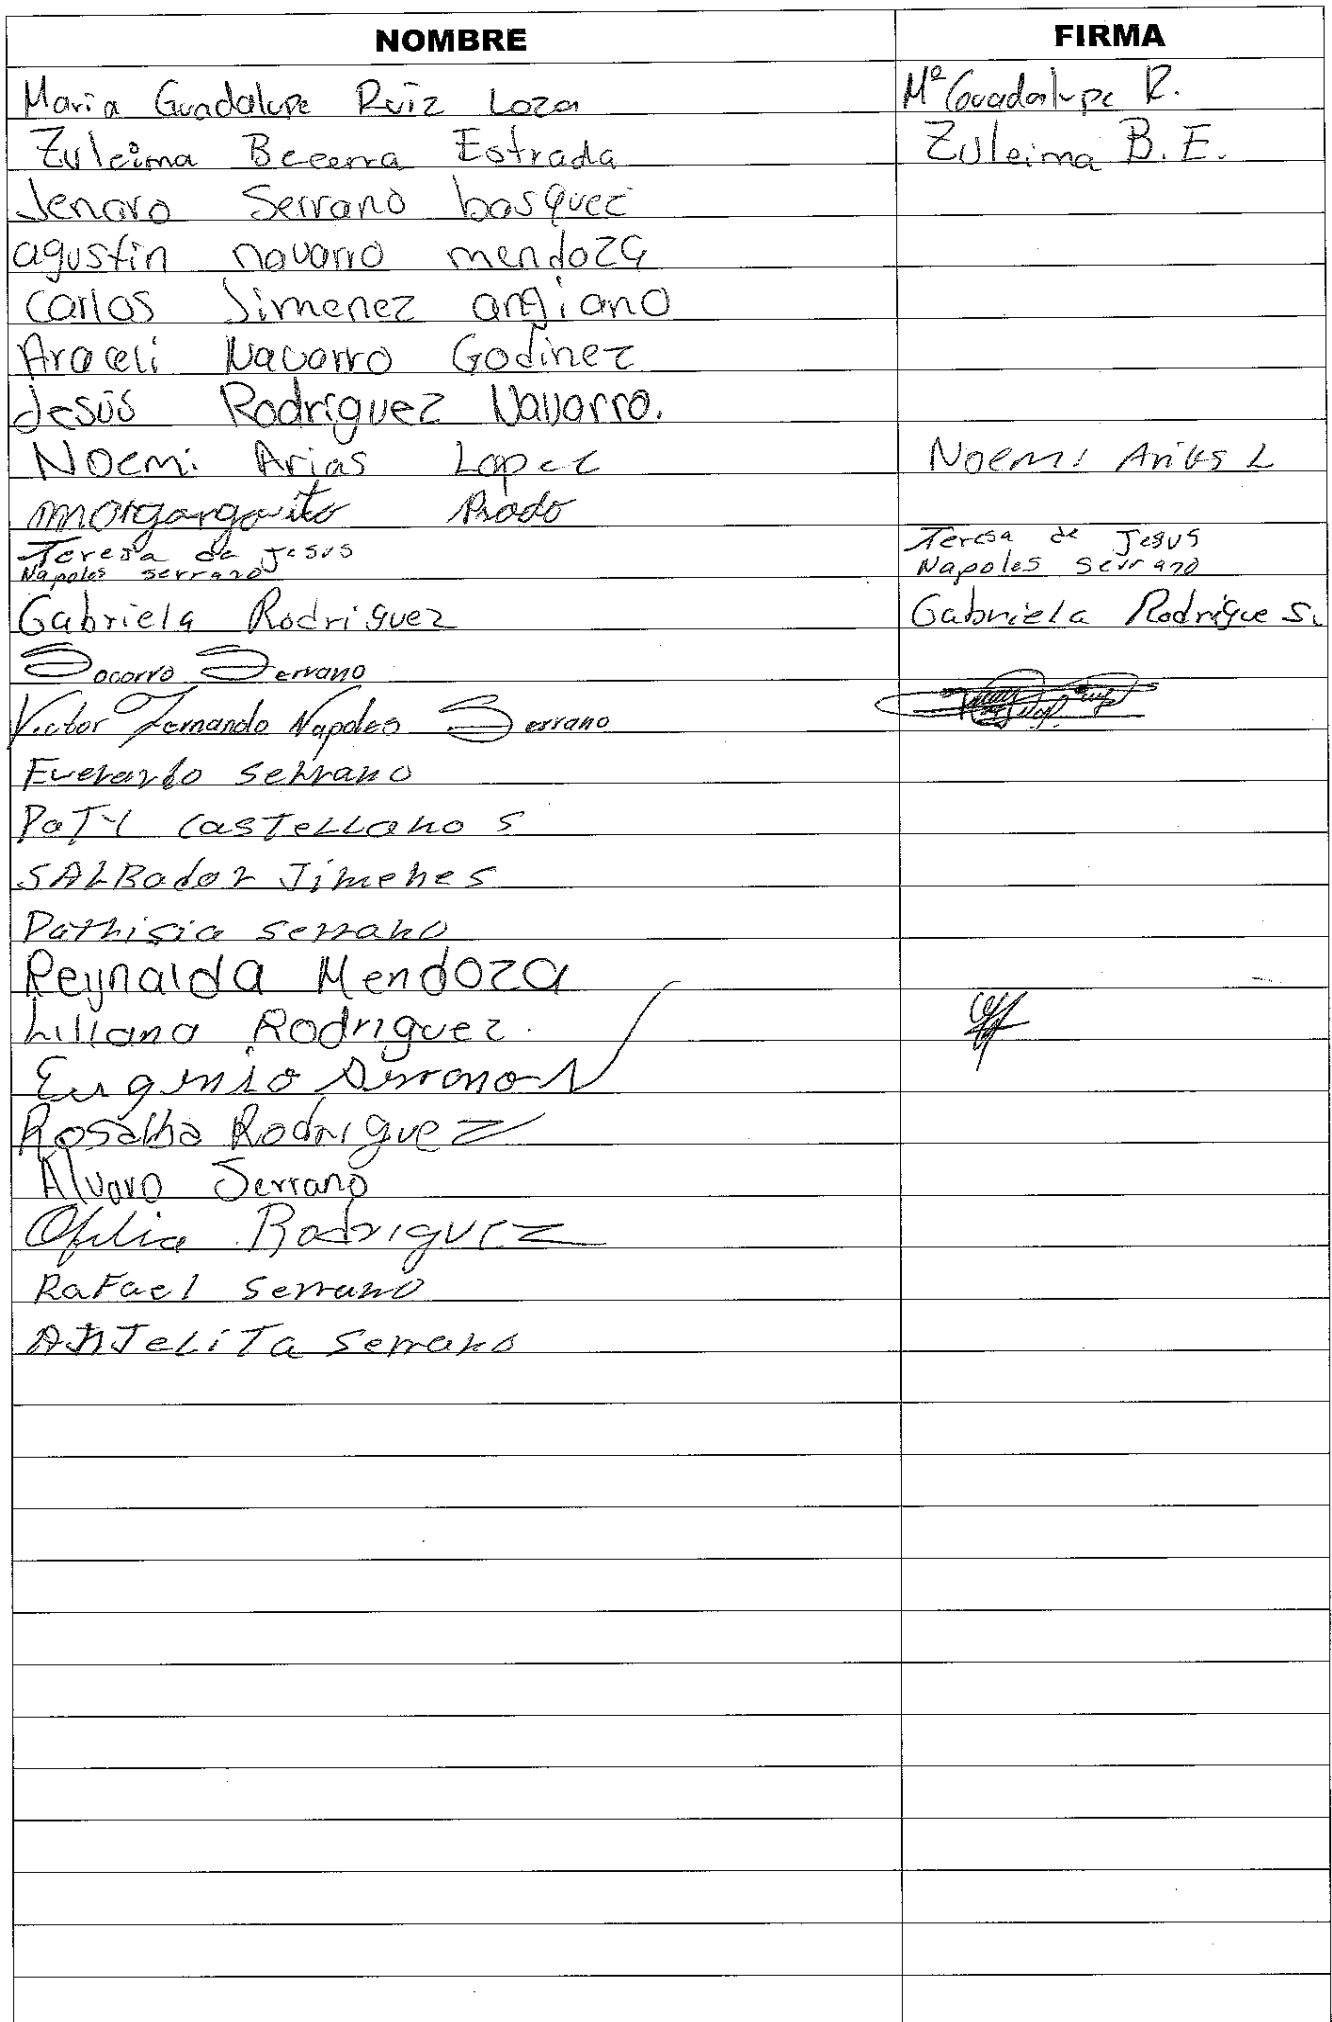 NOMBRE FIRMA
Maria Guadalupe Ruiz Loza Mª Guadalupe R.
Zuleima Becerra Estrada Zuleima B. E.
Jenaro Serrano basquez
agustin navarro mendoza
carlos Jimenez angiano
Araceli Navarro Godinez
Jesús Rodriguez Navarro.
Noemi Arias Lopez Noemi Arias L
morgargarito Prado
Teresa de Jesus Teresa de Jesus
Napoles serrano Napoles serrano
Gabriela Rodriguez Gabriela Rodrigue S.
Socorro Serrano
Victor Fernando Napoles Serrano
Everardo serrano
PaTY CasTeLLano S
SALBador Jimenes
Patrisia serrano
Reynalda Mendoza
Liliana Rodriguez.
Eugenio Serrano N
Rosalba Rodriguez
Alvaro Serrano
Ofelia Rodriguez
RaFael Serrano
ANJeLiTa Serrano